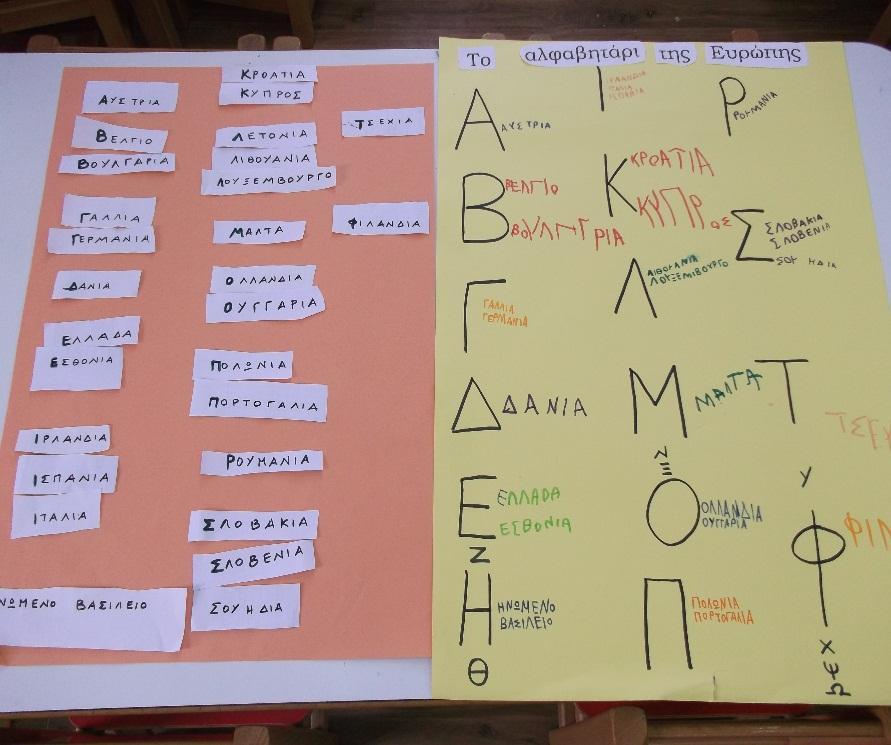 ΑΥΣΤΡΙΑ
ΒΕΛΓΙΟ
ΒΟΥΛΓΑΡΙΑ
ΓΑΛΛΙΑ
ΓΕΡΜΑΝΙΑ
ΔΑΝΙΑ
ΕΛΛΑΔΑ
ΕΣΘΟΝΙΑ
ΙΡΛΑΝΔΙΑ
ΙΣΠΑΝΙΑ
ΙΤΑΛΙΑ
ΝΩΜΕΝΟ ΒΑΣΙΛΕΙΟ
ΚΡΟΑΤΙΑ
ΚΥΠΡΟΣ
ΛΕΤΟΝΙΑ
ΛΙΘΟΥΑΝΙΑ
ΛΟΥΞΕΜΒΟΥΡΓΟ
ΜΑΛΤΑ
ΟΛΛΑΝΔΙΑ
ΟΥΓΓΑΡΙΑ
ΠΟΛΩΝΙΑ
ΠΟΡΤΟΓΑΛΙΑ
ΡΟΥΜΑΝΙΑ
ΣΛΟΒΑΚΙΑ
ΣΛΟΒΕΝΙΑ
ΣΟΥΗΔΙΑ
ΤΣΕΧΙΑ
ΦΙΛΑΝΔΙΑ
Το αλφαβητάρι της Ευρώπης
Α ΑΥΣΤΡΙΑ
Β ΒΕΛΓΙΟ
ΒΟΥΛΓΓΡΙΑ
Γ ΓΑΛΛΙΑ
ΓΕΡΜΑΝΙΑ
Δ ΔΑΝΙΑ
Ε ΕΛΛΑΔΑ
ΕΣΘΟΝΙΑ
Ζ
Η ΗΝΩΜΕΝΟ
ΒΑΣΙΛΕΙΟ
Θ
Ι ΙΡΛΑΝΔΙΑ
Κ ΚΡΟΑΤΙΑ
ΚΥΠΡΟΣ
Λ ΛΙΘΟΥΑΝΙΑ
ΛΟΥΞΕΜΒΟΥΡΓΟ
Μ ΜΑΛΤΑ
Ν
Ξ
Ο ΟΛΛΑΝΔΙΑ
ΟΥΓΓΑΡΙΑ
Π ΠΟΛΩΝΙΑ
ΠΟΡΤΟΓΑΛΙΑ
Ρ ΡΟΥΜΑΝΙΑ
Σ ΣΛΟΒΑΚΙΑ
ΣΛΟΒΕΝΙΑ
ΣΟΥΗΔΙΑ
Τ ΤΣΕΧ
Υ
Φ ΦΙΝ
Χ
Ψ